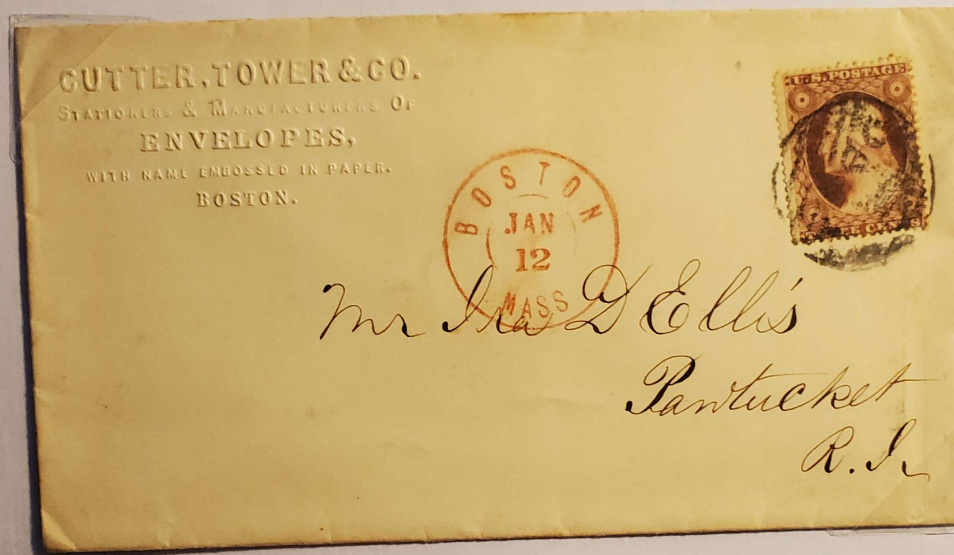 CUTTER, TOWER & CO.
STATIONERS & MANUFACTURERS OF
ENVELOPES,
WITH NAME EMBOSSED IN PAPER.
BOSTON.
U.S. POSTAGE
THREE CENTS
BOSTON
JAN
12
MASS
Mr Ira D Ellis
Pawtucket
R. I.